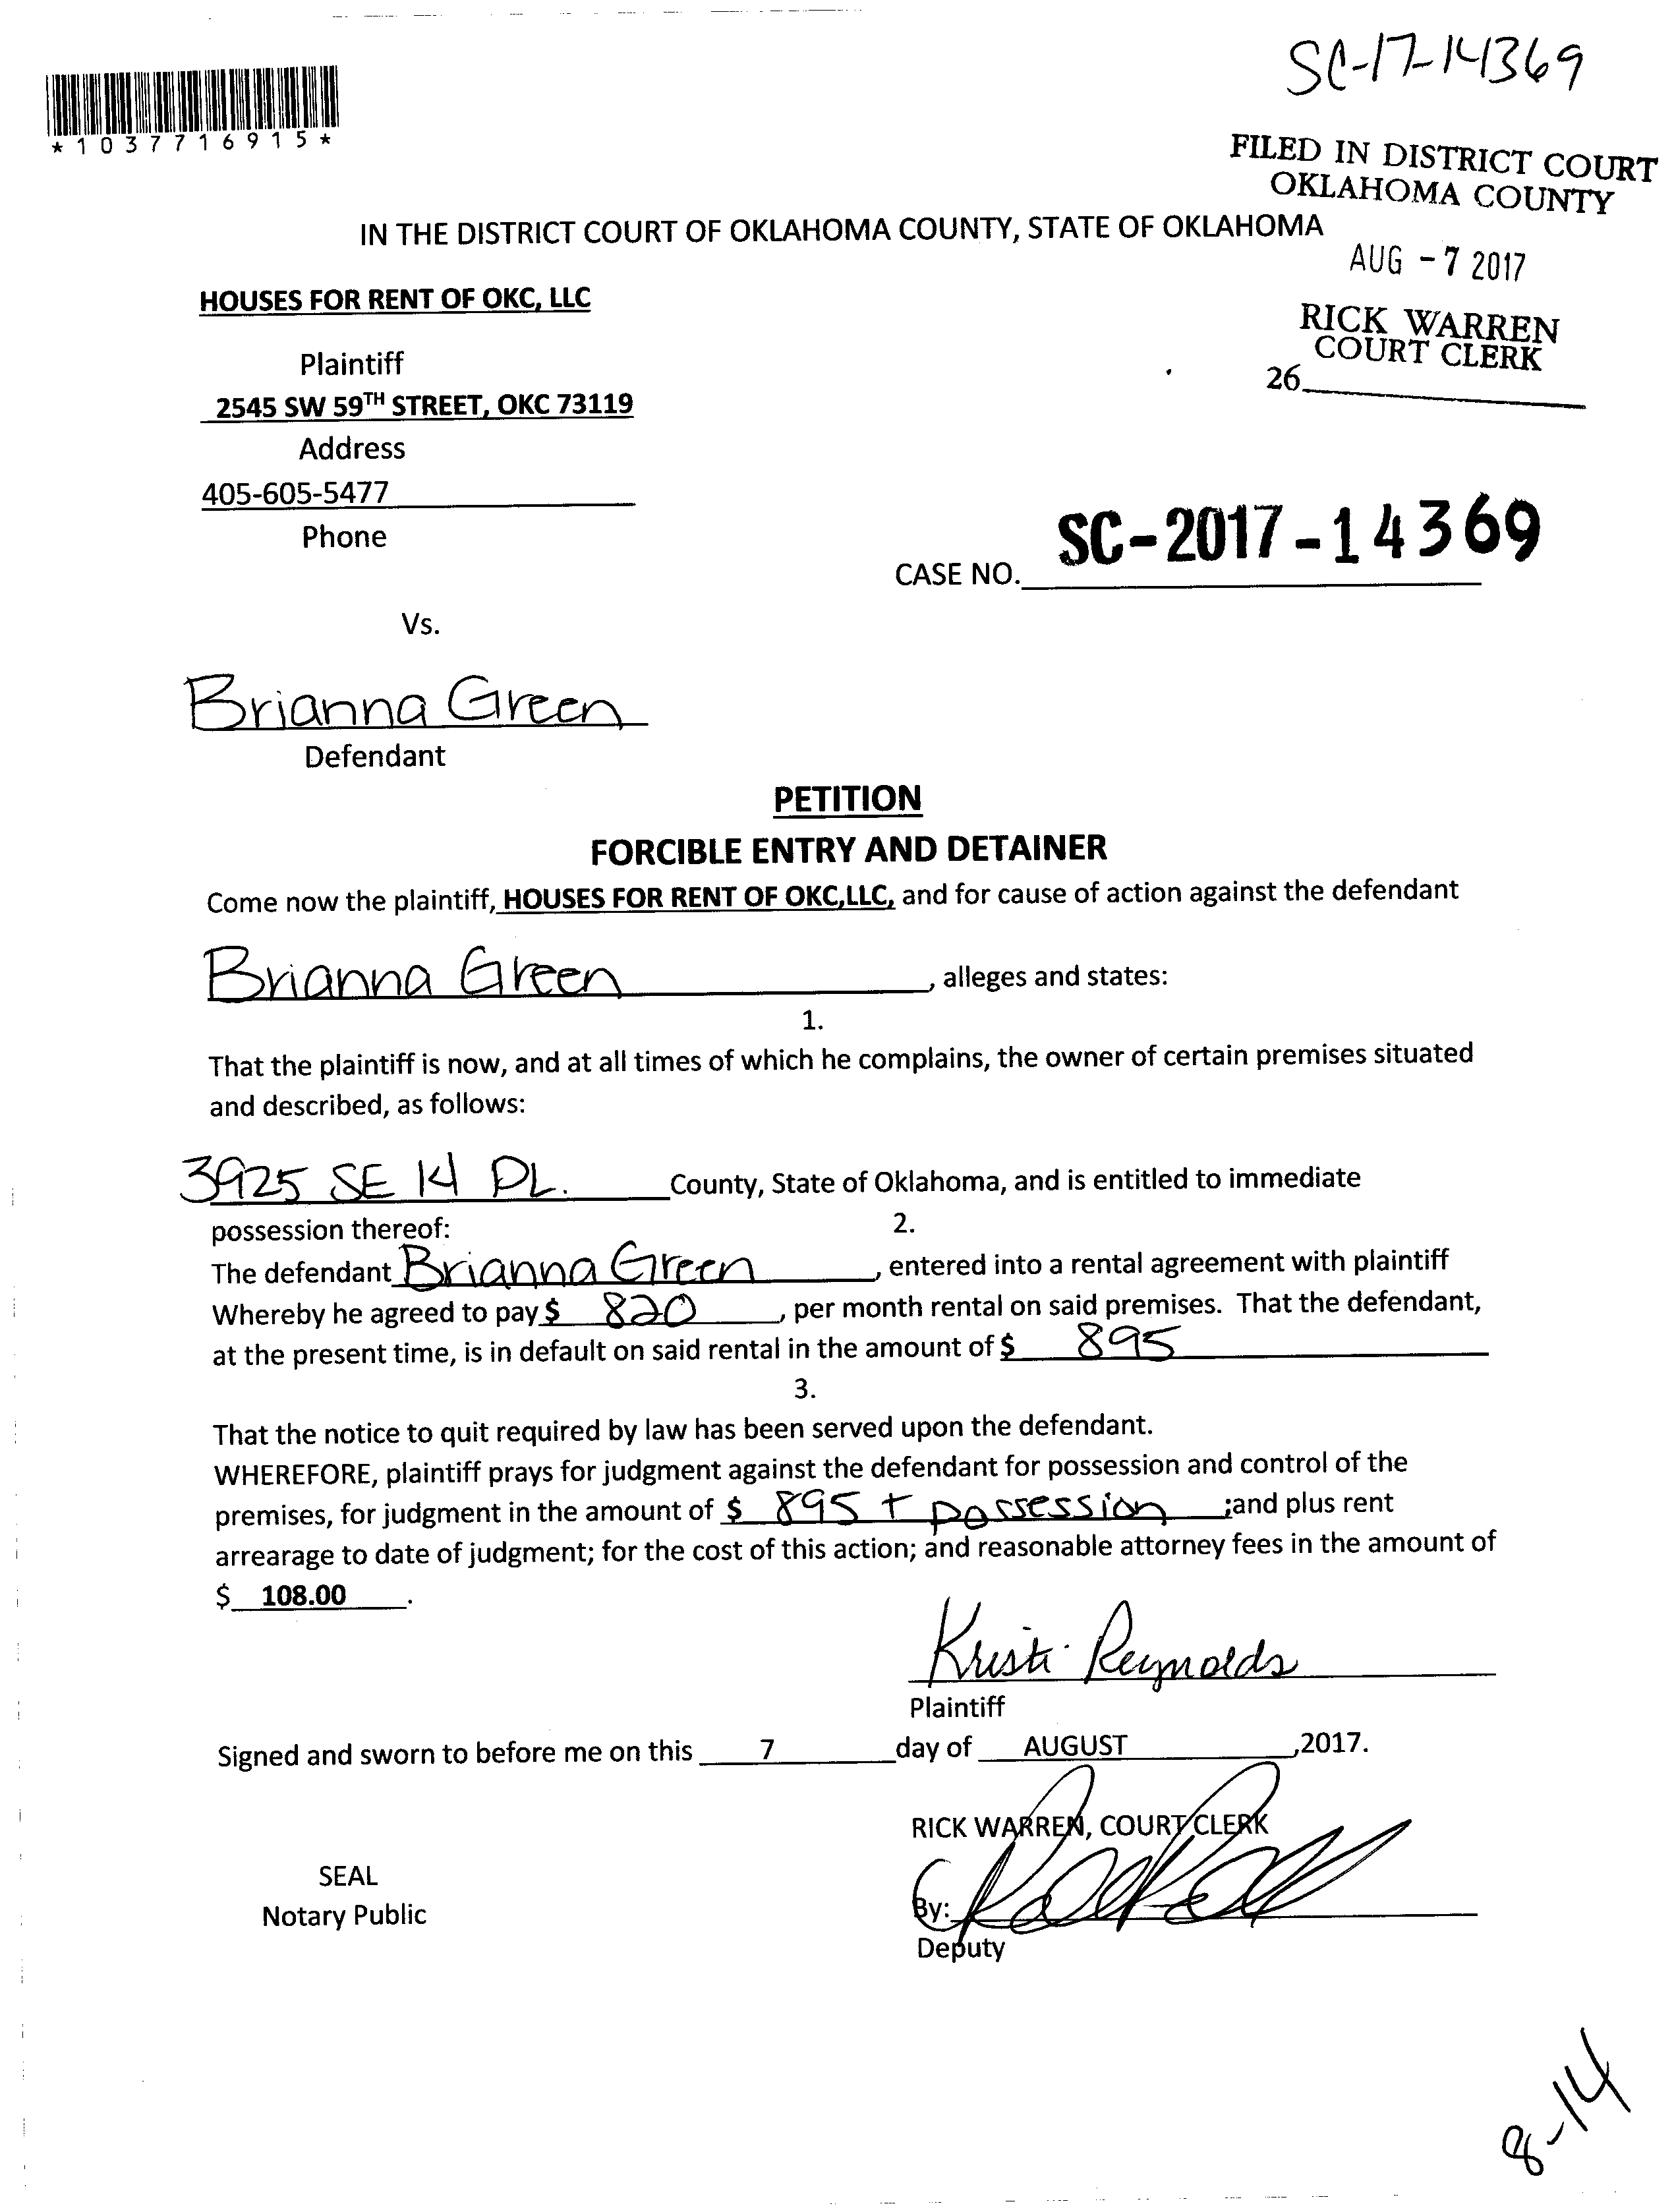 SC-17-14369
*1037716915*
FILED IN DISTRICT COURT
OKLAHOMA COUNTY
IN THE DISTRICT COURT OF OKLAHOMA COUNTY, STATE OF OKLAHOMA
AUG - 7 2017
HOUSES FOR RENT OF OKC, LLC
RICK WARREN
COURT CLERK
Plaintiff
26
2545 SW 59TH STREET, OKC 73119
Address
405-605-5477
Phone
SC-2017-14369
CASE NO.
Vs.
Brianna Green
Defendant
PETITION
FORCIBLE ENTRY AND DETAINER
Come now the plaintiff, HOUSES FOR RENT OF OKC,LLC, and for cause of action against the defendant
Brianna Green, alleges and states:
1.
That the plaintiff is now, and at all times of which he complains, the owner of certain premises situated
and described, as follows:
3925 SE 14 PL. County, State of Oklahoma, and is entitled to immediate
possession thereof:
2.
The defendant Brianna Green, entered into a rental agreement with plaintiff
Whereby he agreed to pay $ 820, per month rental on said premises. That the defendant,
at the present time, is in default on said rental in the amount of $ 895
3.
That the notice to quit required by law has been served upon the defendant.
WHEREFORE, plaintiff prays for judgment against the defendant for possession and control of the
premises, for judgment in the amount of $ 895 + possession ;and plus rent
arrearage to date of judgment; for the cost of this action; and reasonable attorney fees in the amount of
$ 108.00.
Kristi Reynolds
Plaintiff
Signed and sworn to before me on this 7 day of AUGUST ,2017.
RICK WARREN, COURT CLERK
SEAL
Notary Public
By:
Deputy
8-14